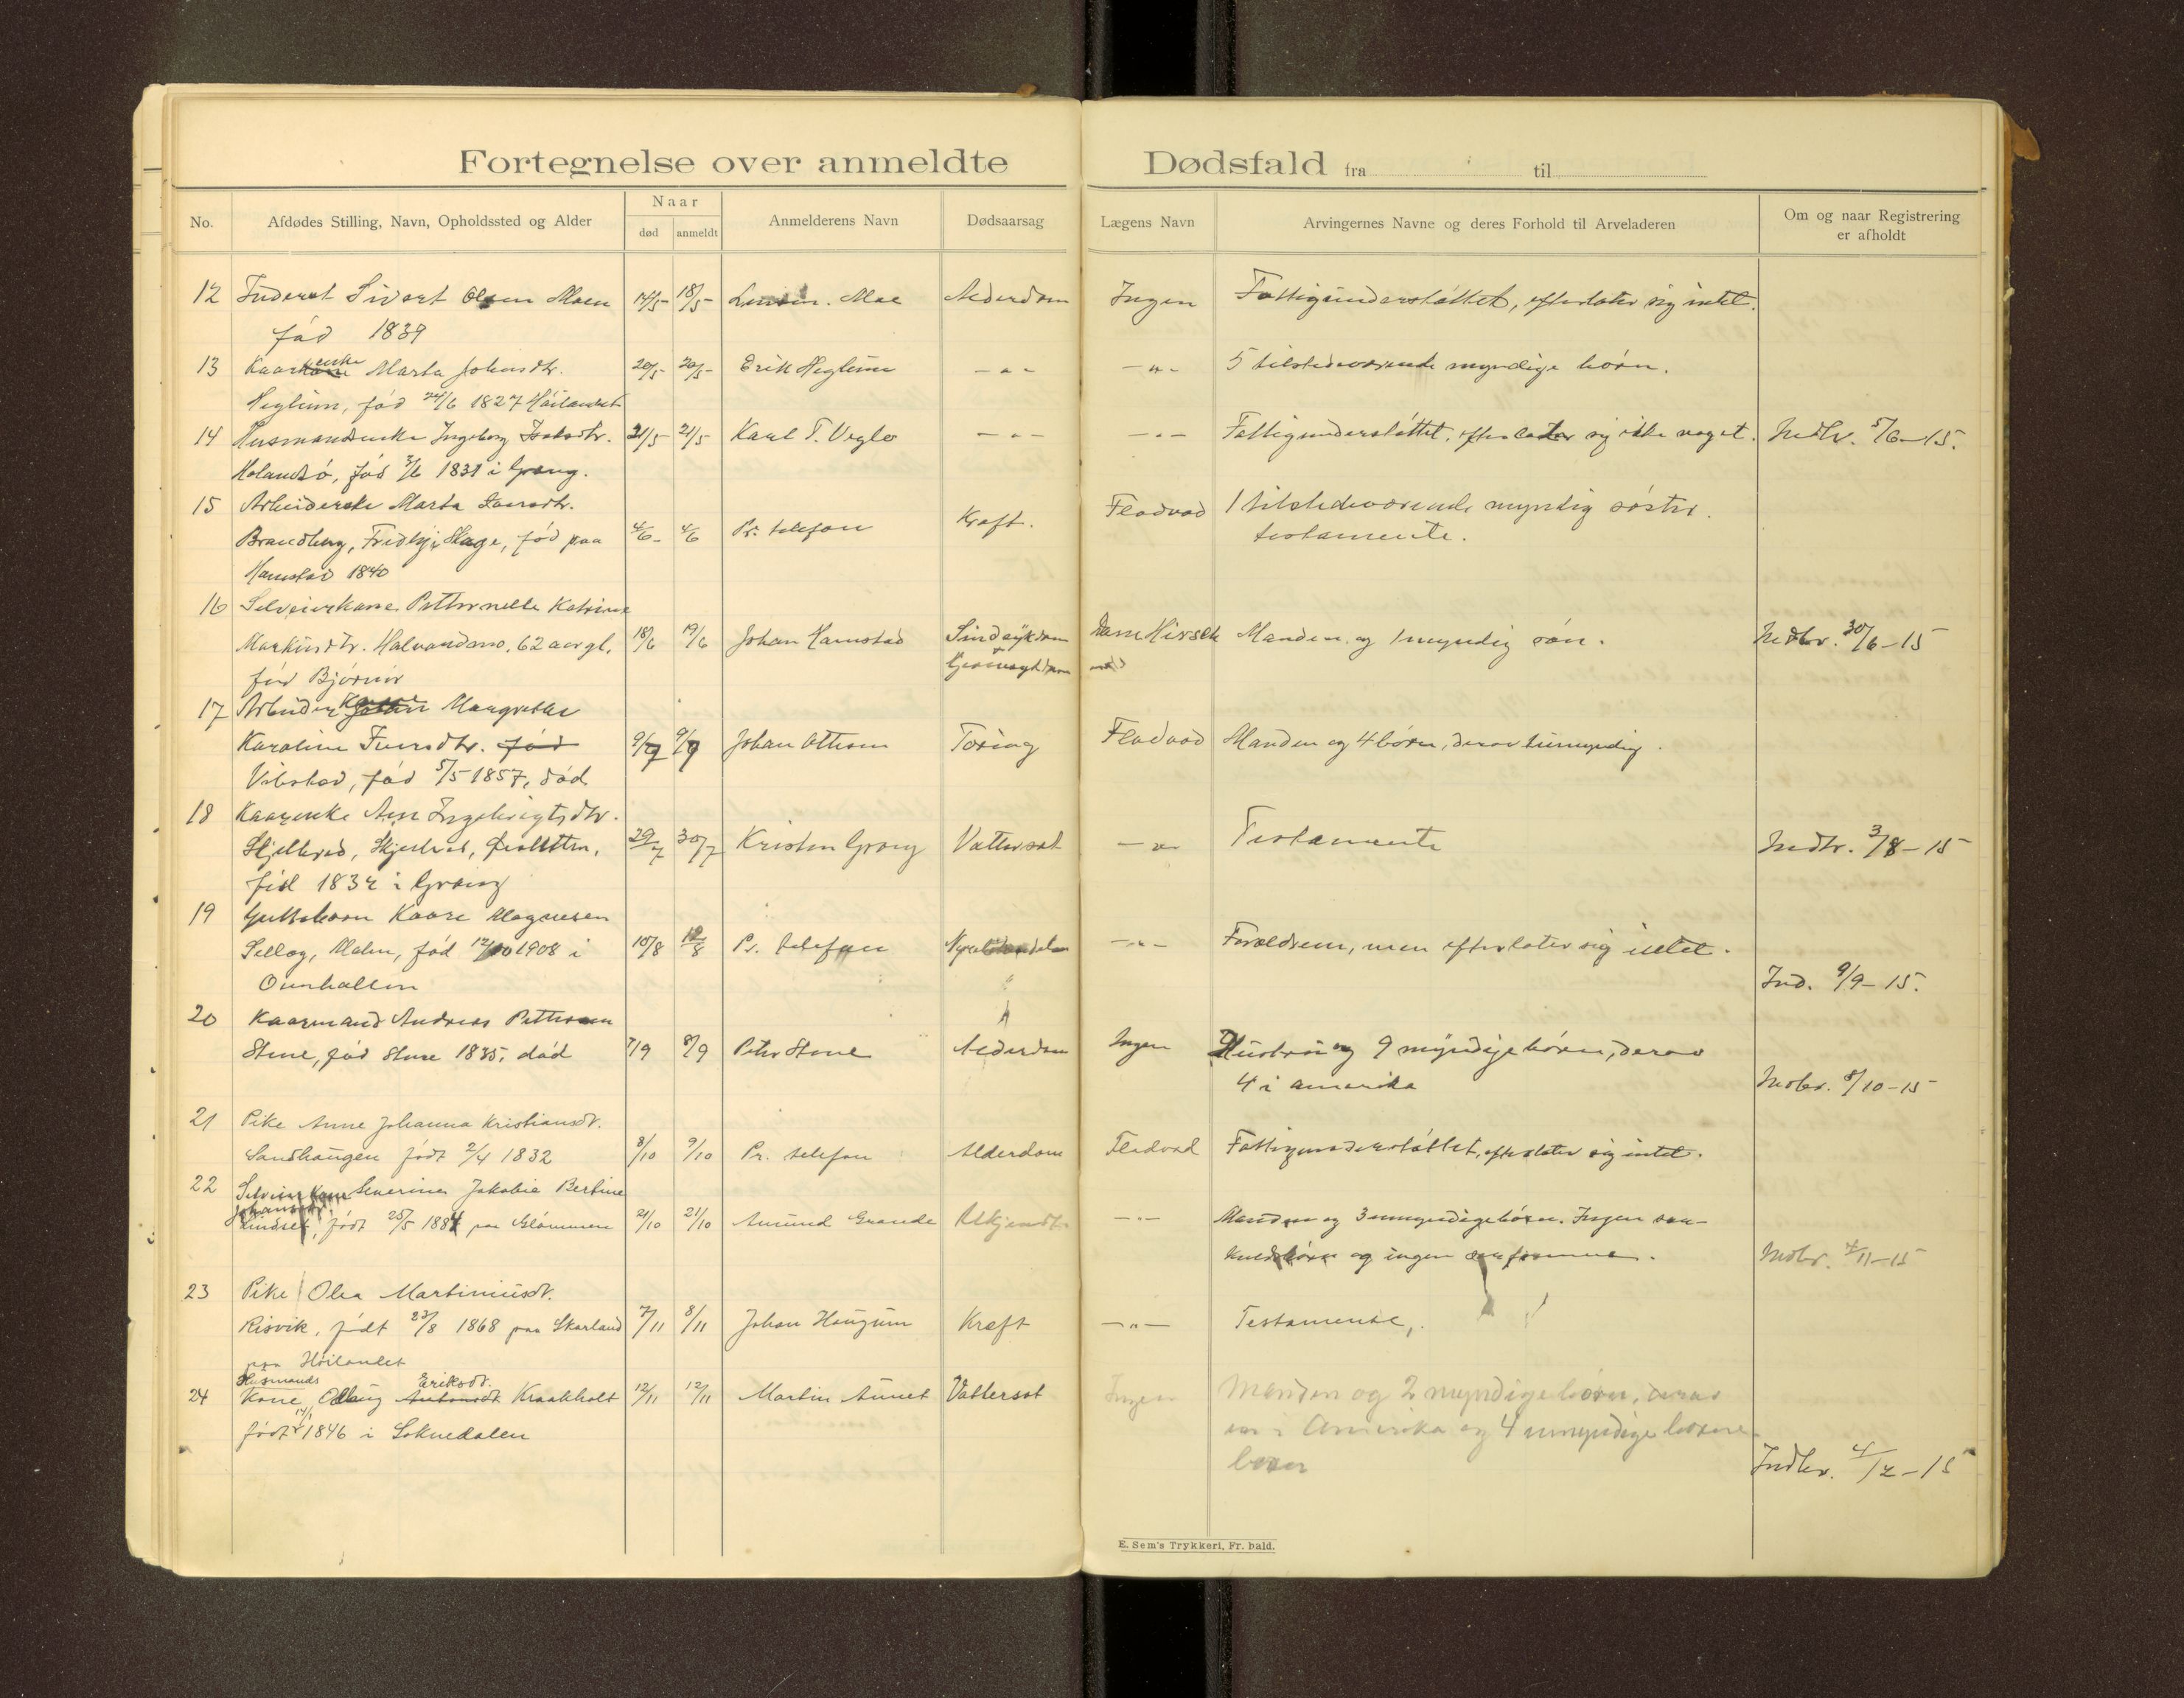 Fortegnelse over anmeldte Dødsfald fra til
No. Afdødes Stilling, Navn, Opholdssted og Alder Naar død anmeldt Anmelderens Navn Dødsaarsag Lægens Navn Arvingernes Navne og deres Forhold til Arveladeren Om og naar Registrering er afholdt
12 Inderst Sivert Olsen Moen 14/5- 18/5- Moe Alderdom Ingen Fattigunderstøttet, efterlater sig intet.
fød 1839
13 Kaarenke Marta Johnsdtr. 20/5- 20/5- Erik Heglum - " - - " - 5 tilstedeværende myndige børn.
Heglum, fød 24/6 1827 Høilandet
14 Husmandsenke Ingeborg Isaksdtr. 21/5- 21/5- Karl T. Veglo - " - - " - Fattigunderstøttet, efterlater sig ikke noget. Indbr. 5/6-15.
Holandsø, fød 3/6 1831 i Grong.
15 Arbeiderske Marta Larsdtr.
Brandberg, Fredhji Hage, fød paa 4/6- 4/6 Pr. telefon Kræft. Flodvad 1 tilstedeværende myndig søster.
testamente.
Hamstad 1840
16 Selveierkone Petternelle Katrine
Markusdtr. Halvardmo, 62 aar gl. 18/6 19/6 Johan Hamstad Sindsykdom Dam Hirsch Manden og 1 myndig søn. Indbr. 30/6-15
fød Bjørnør
17 Arbeider Kone Margrethe
Karoline Iversdtr. fød 9/7 9/7 Johan Ottesen Tæring Flodvad Manden og 4 børn, derav 1 umyndig.
Vibstad, fød 5/5 1857, død
18 Kaarenke Ane Ingebrigtsdtr.
Skjelbred, Skjelbred, 29/7 30/7 Kristen Grong Vattersot - " - Testamente Indbr. 3/8-15
fød 1834 i Grong
19 Guttebarn Kaare Magnesen
Selløg, Malm, fød 12/10 1908 i 10/8 12/8 Pr. telefon - " - Forældrene, men efterlater sig intet.
Overhallen Ind. 9/9-15.
20 Kaarmand Andreas Pettersen
Stene, fød Stene 1835, død 7/9 8/9 Peter Stene Alderdom Ingen Hustru og 9 myndige børn, derav
4 i amerika Indbr. 8/10-15
21 Pike Anne Johanna Kristiansdt.
Sandhaugen født 2/4 1832 8/10 9/10 Pr. telefon Alderdom Flodvad Fattigunderstøttet, efterlater sig intet.
22 Selveier Kone Severine Jakobie Bertine
Johansdt.
Lindset, født 25/5 1884 paa Glømmen 21/10 21/10 Amund Grande Ukjendt - " - Manden og 3 umyndige børn. Ingen sær-
kuldsbørn og ingen Indbr. 4/11-15
23 Pike Olea Martiniusdt.
Risvik, født 23/8 1868 paa Skarland 7/11 8/11 Johan Haugum Kræft - " - Testamente,
paa Høilandet
24 Husmands Kone Antonsdt Eriksdt. Kraakholt 12/11 12/11 Martin Aunet Vattersot Ingen Manden og 2 myndige børn, derav
født 14/1 1846 i Soknedalen en i Amerika og 4 umyndige
børn Indbr. 4/12-15
E. Sem's Trykkeri, Fr. hald.